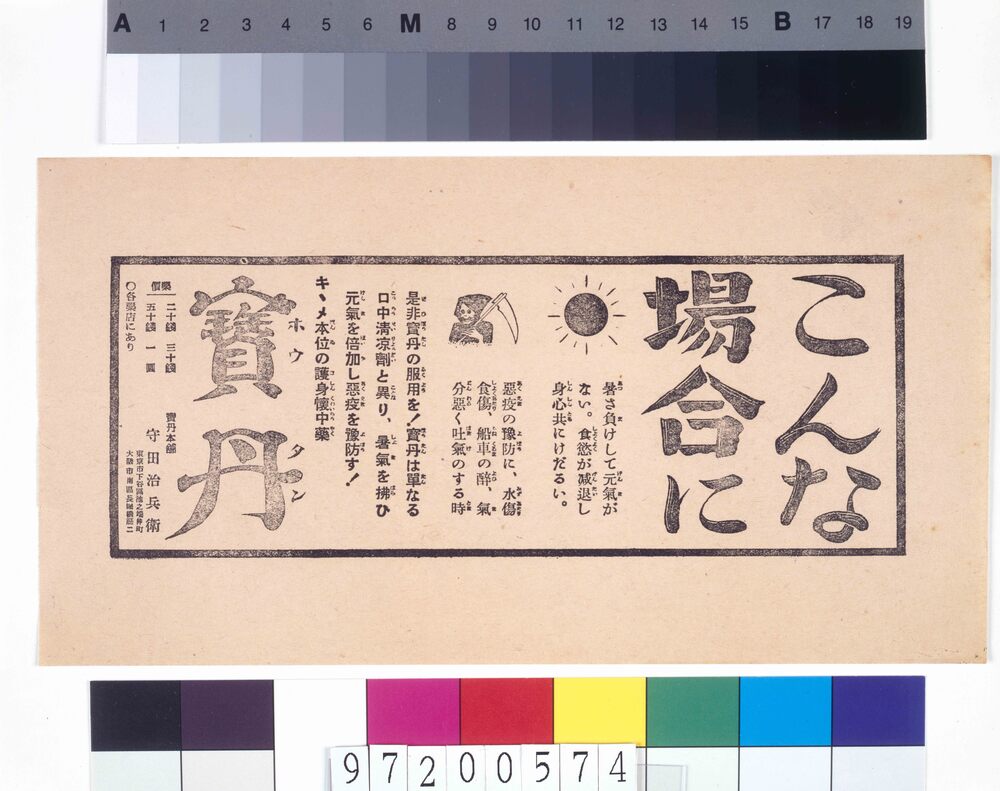 A 1 2 3 4 5 6 M 8 9 10 11 12 13 14 15 B 17 18 19
こんな
場合に
暑さ負けして元氣が
ない。食慾が減退し
身心共にけだるい。
惡疫の豫防に、水傷
食傷、船車の醉、氣
分惡く吐氣のする時
是非寳丹の服用を!寳丹は單なる
口中清凉劑と異り、暑氣を拂ひ
元氣を倍加し惡疫を豫防す!
キヽメ本位の護身懷中藥
ホウタン
寳丹
寳丹本舖
守田治兵衛
東京市下谷區池之端仲町
大阪市南區長堀橋筋二
藥價
二十錢 三十錢
五十錢 一圓
○各藥店にあり
97200574